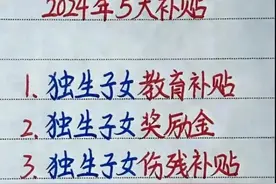 2024年5大补贴
1. 独生子女教育补贴
2. 独生子女奖励金
3. 独生子女伤残补贴